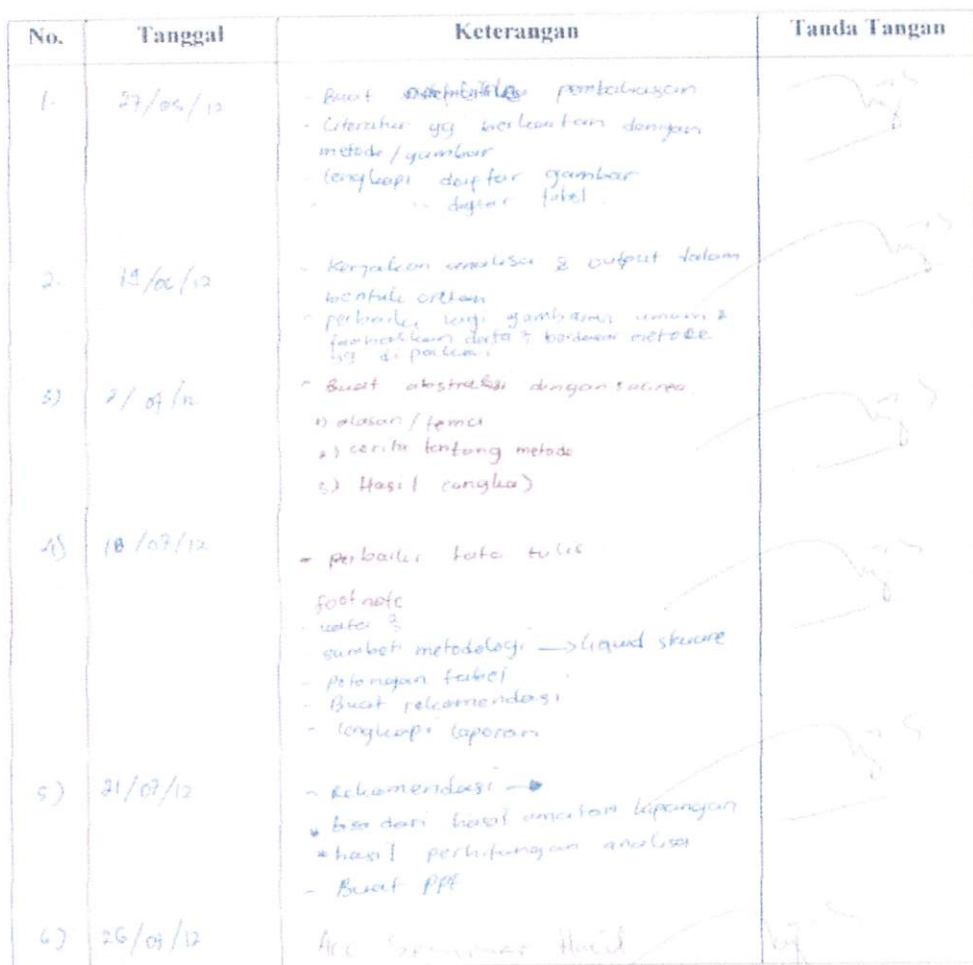 No. Tanggal Keterangan Tanda Tangan
1. 27/06/12 - Buat pembahasan
- Literatur yg berkaitan dengan
metode/gambar
- lengkapi daftar gambar
daftar tabel
2. 19/06/12 - Kerjakan analisa & output dalam
bentuk
- perbaiki lagi gambaran umum &
data
yg dipakai
3) 2/07/12 - Buat abstraksi dengan
1) alasan/tema
2) cerita tentang metode
3) Hasil (angka)
4) 18/07/12 - perbaiki tata tulis
footnote
sumber metodologi →
- Potongan tabel
- Buat rekomendasi
- lengkapi laporan
5) 21/07/12 - Rekomendasi →
dari hasil amatan lapangan
hasil perhitungan analisa
- Buat PPt
6) 26/07/12 Acc Seminar Hasil